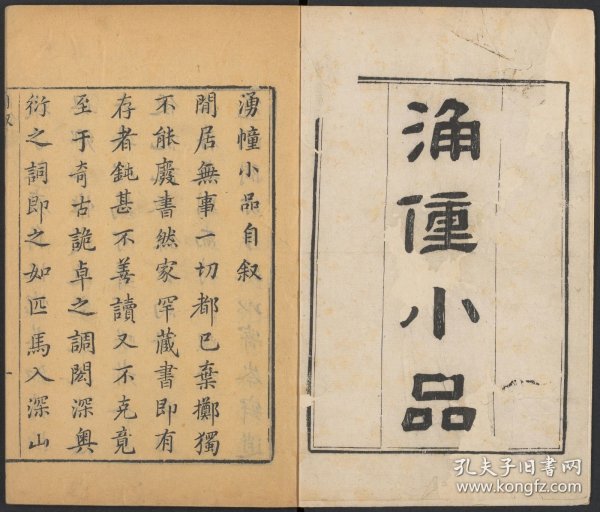 涌幢小品
湧幢小品自叙
閒居無事一切都已棄擲獨
不能廢書然家罕藏書即有
存者鈍甚不善讀又不克竟
至于奇古詭卓之調閎深奧
衍之詞即之如匹馬入深山
自叙
一
孔夫子旧书网
www.kongfz.com